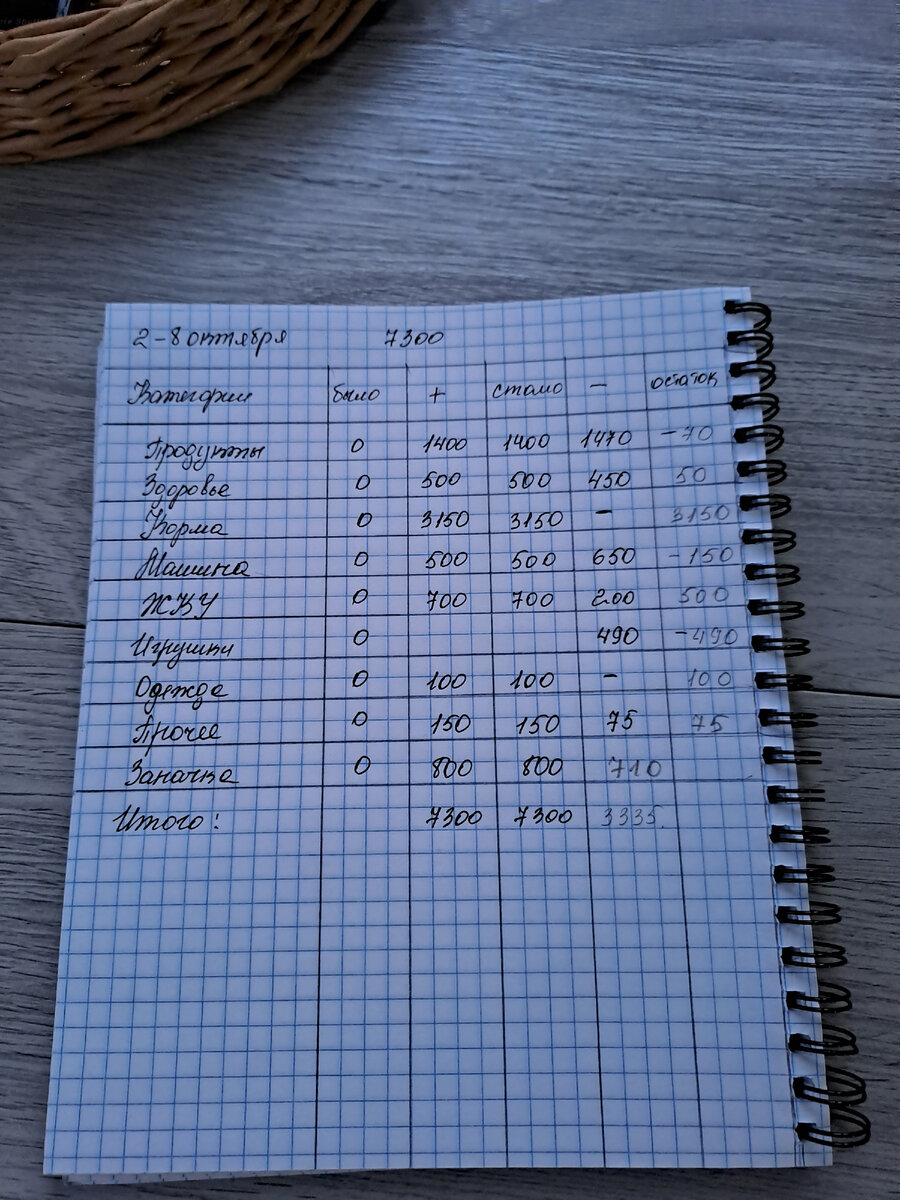 2-8 октября 7300
Категории было + стало - остаток
Продукты 0 1400 1400 1470 -70
Здоровье 0 500 500 450 50
Корма 0 3150 3150 - 3150
Машина 0 500 500 650 -150
ЖКУ 0 700 700 200 500
Игрушки 0 490 -490
Одежда 0 100 100 - 100
Прочее 0 150 150 75 75
Заначка 0 800 800 710
Итого: 7300 7300 3335.